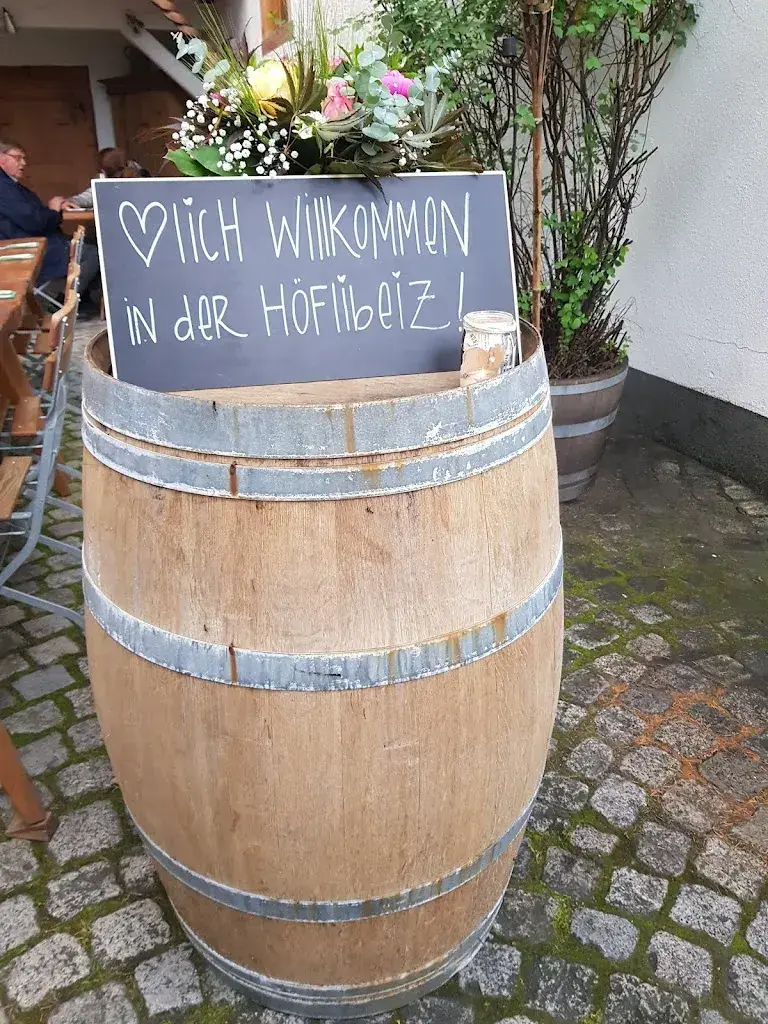 ♡lich Willkommen
in der Höflibeiz!